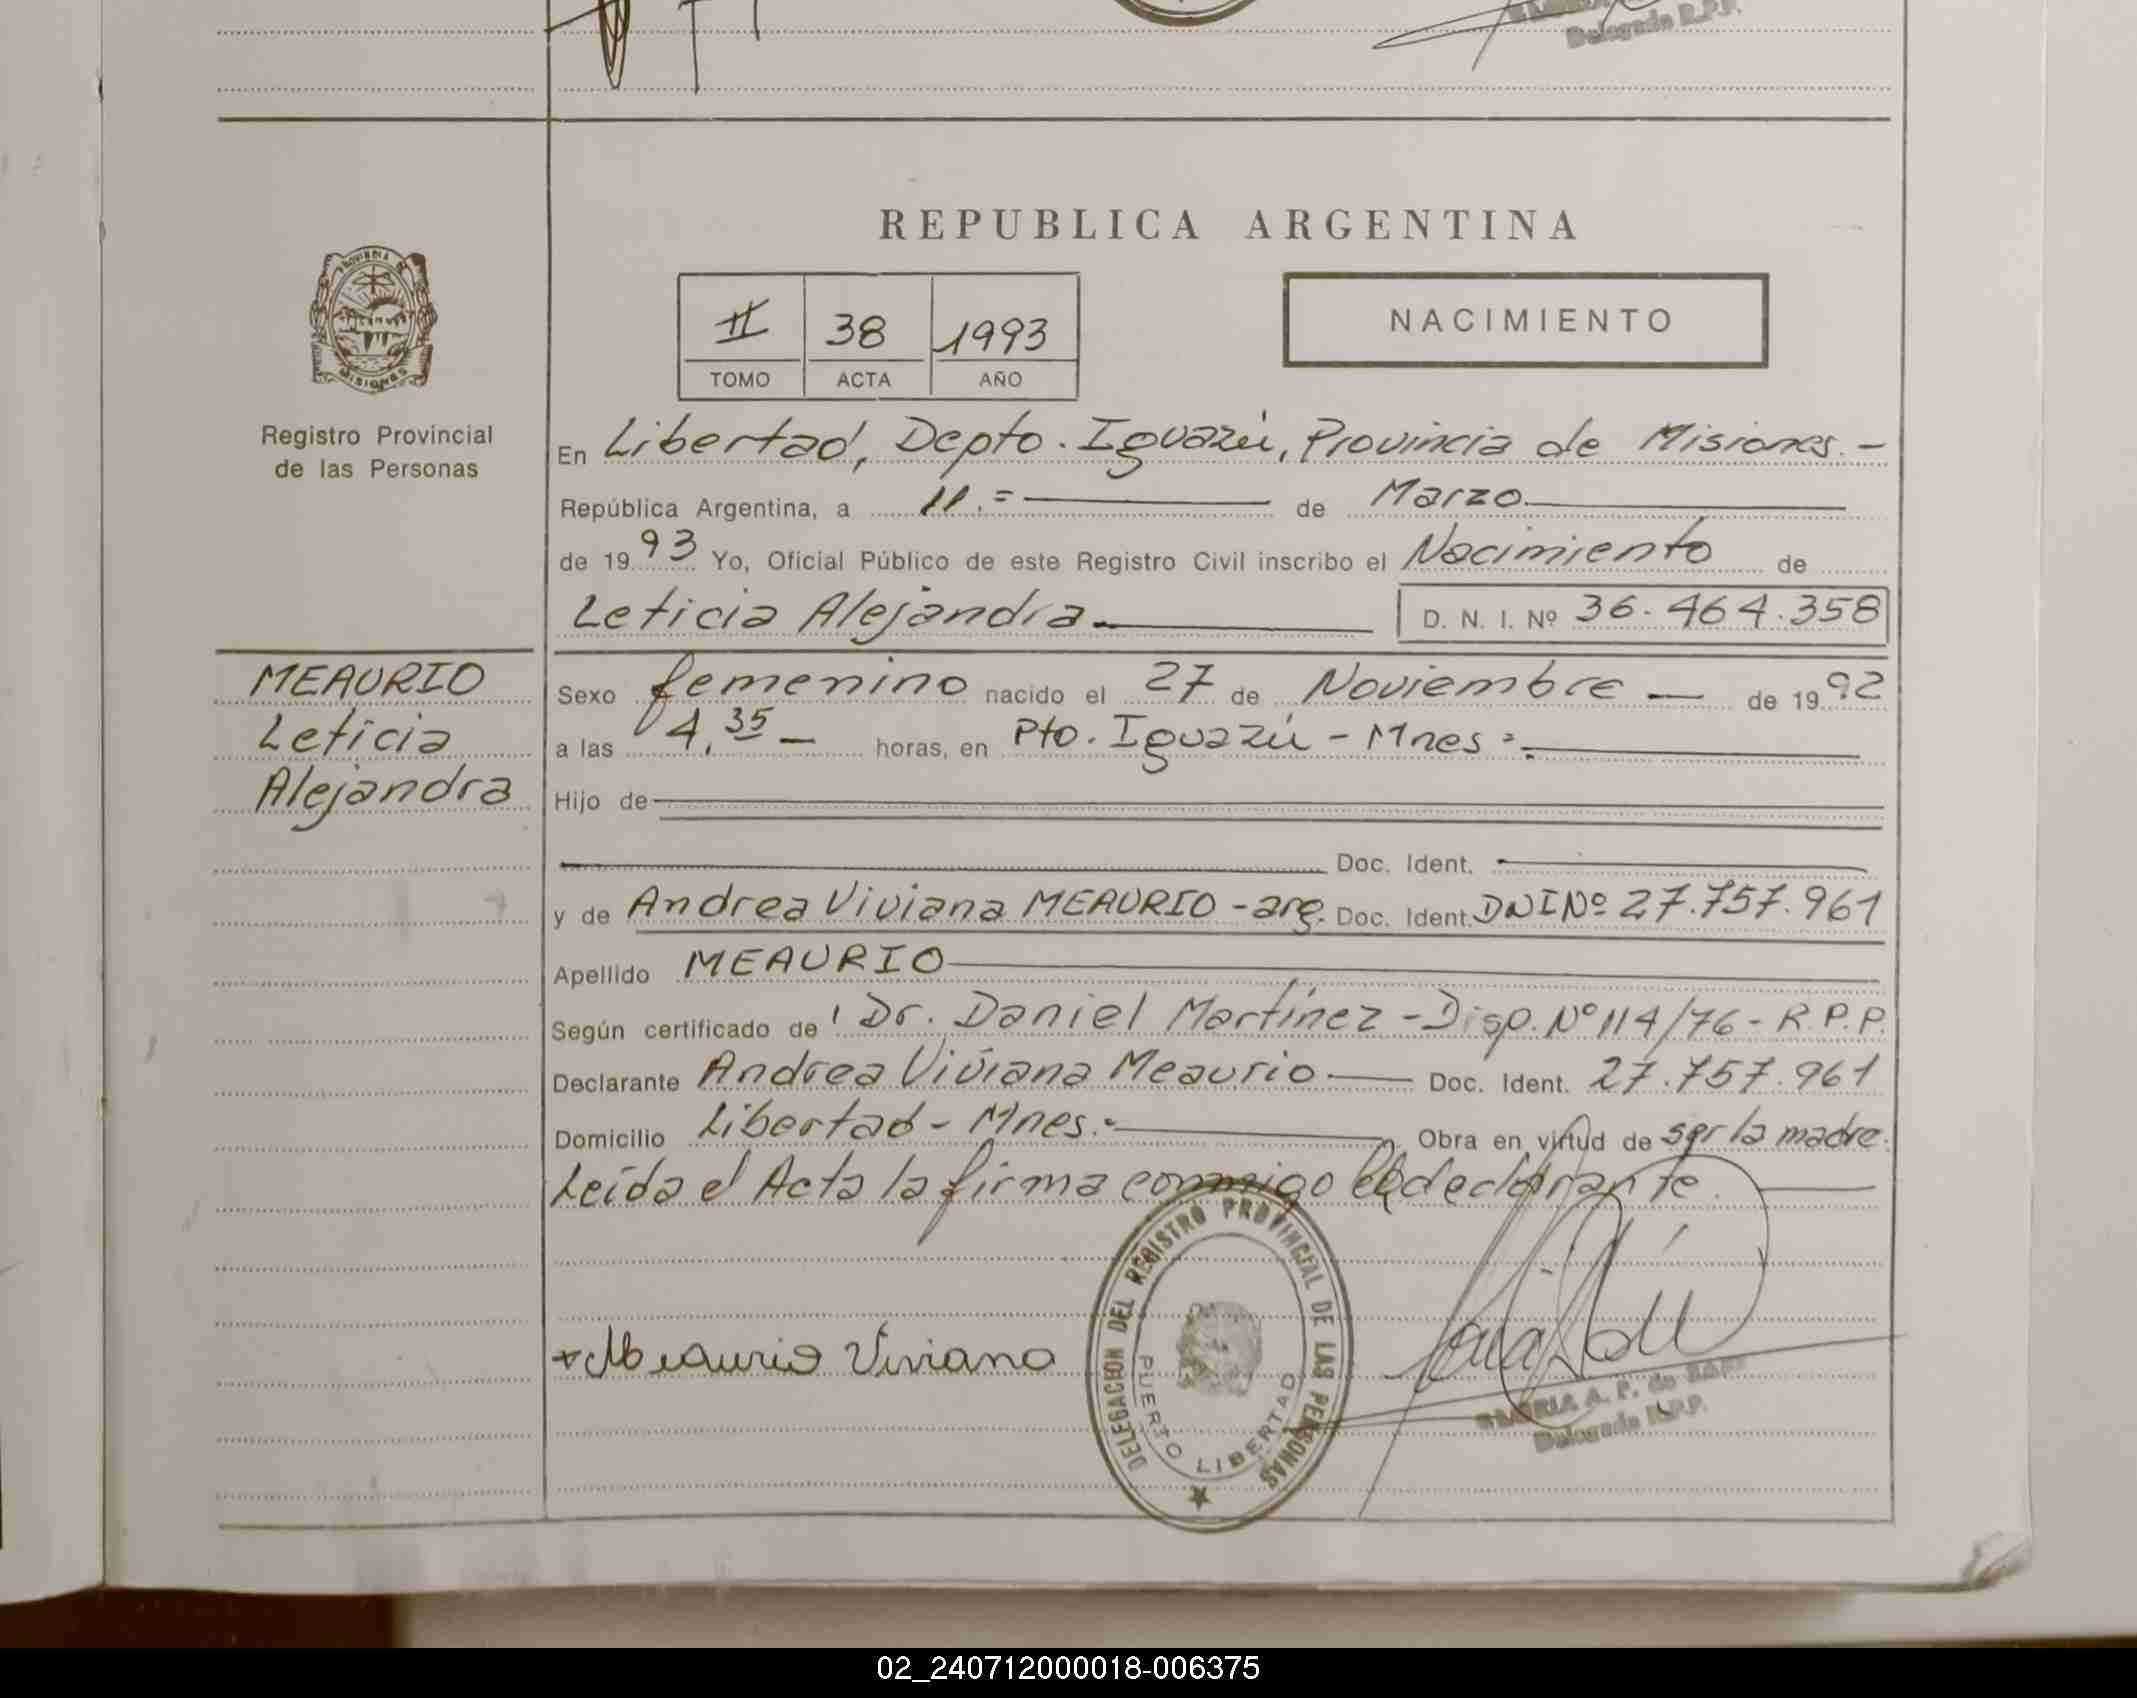 Delegada R.P.P.
REPUBLICA ARGENTINA
PROVINCIA DE MISIONES
Registro Provincial
de las Personas
II 38 1993
TOMO ACTA AÑO
NACIMIENTO
En Libertad, Depto. Iguazú, Provincia de Misiones.-
República Argentina, a 11.= de Marzo
de 1993 Yo, Oficial Público de este Registro Civil inscribo el Nacimiento de
Leticia Alejandra.- D. N. I. Nº 36.464.358
MEAURIO
Leticia
Alejandra
Sexo femenino nacido el 27 de Noviembre - de 1992
a las 4,35 - horas, en Pto. Iguazú - Mnes.-
Hijo de
Doc. Ident.
y de Andrea Viviana MEAURIO - arg. Doc. Ident. DNI Nº 27.757.961
Apellido MEAURIO
Según certificado de Dr. Daniel Martínez - Disp. Nº 114/76 - R.P.P.
Declarante Andrea Viviana Meaurio - Doc. Ident. 27.757.961
Domicilio Libertad - Mnes.- Obra en virtud de ser la madre.
Leída el Acta la firma conmigo la declarante.
Meaurio Viviana
DELEGACION DEL REGISTRO PROVINCIAL DE LAS PERSONAS
PUERTO LIBERTAD
GLORIA A. P. de
Delegada R.P.P.
02_240712000018-006375